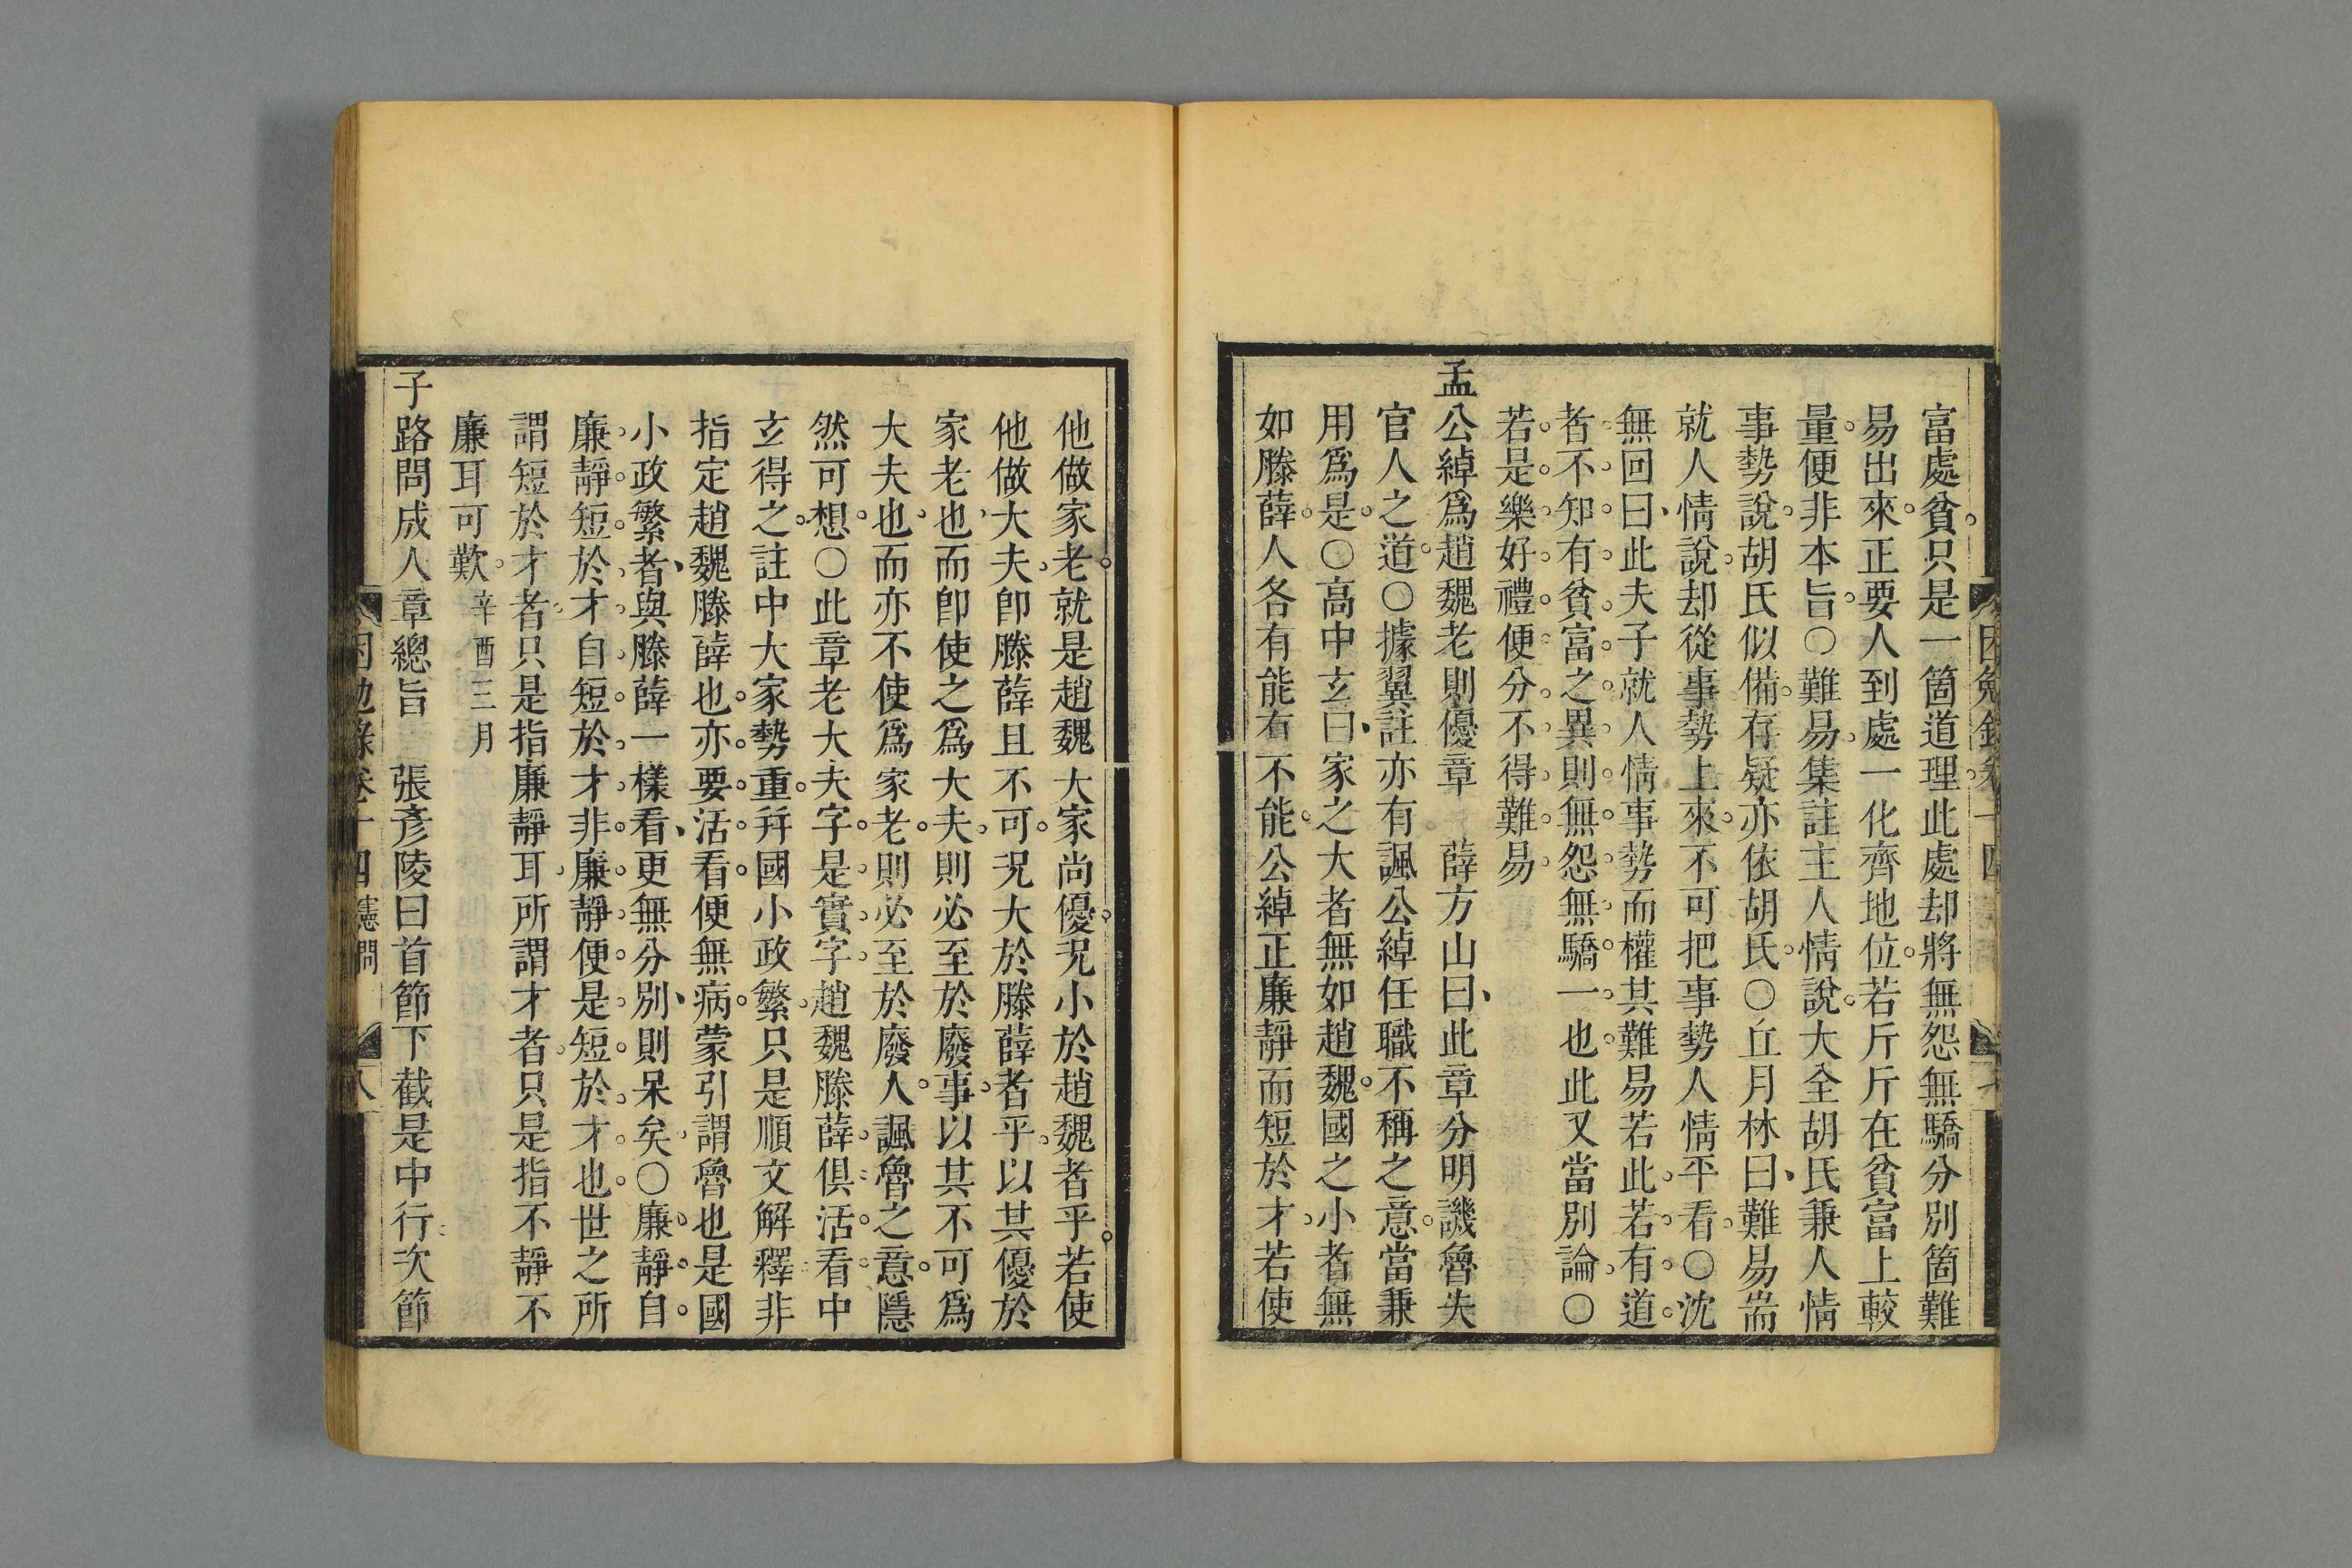 富處貧只是一箇道理此處却將無怨無驕分別箇難
易出來正要人到處一化齊地位若斤斤在貧富上較
量便非本旨○難易集註主人情說大全胡氏兼人情
事勢說胡氏似備存疑亦依胡氏○丘月林曰難易耑
就人情說却從事勢上來不可把事勢人情平看○沈
無回曰此夫子就人情事勢而權其難易若此若有道
者不知有貧富之異則無怨無驕一也此又當別論○
若是樂好禮便分不得難易
孟公綽爲趙魏老則優章　薛方山曰此章分明譏魯失
官人之道○據翼註亦有諷公綽任職不稱之意當兼
用爲是○高中玄曰家之大者無如趙魏國之小者無
如滕薛人各有能有不能公綽正廉靜而短於才若使
他做家老就是趙魏大家尚優况小於趙魏者乎若使
他做大夫卽滕薛且不可况大於滕薛者乎以其優於
家老也而卽使之爲大夫則必至於廢事以其不可爲
大夫也而亦不使爲家老則必至於廢人諷魯之意隱
然可想○此章老大夫字是實字趙魏滕薛俱活看中
玄得之註中大家勢重幷國小政繁只是順文解釋非
指定趙魏滕薛也亦要活看便無病蒙引謂魯也是國
小政繁者與滕薛一樣看更無分別則呆矣○廉靜自
廉靜短於才自短於才非廉靜便是短於才也世之所
謂短於才者只是指廉靜耳所謂才者只是指不靜不
廉耳可歎辛酉三月
子路問成人章總旨　張彥陵曰首節下截是中行次節
卷十四憲問　八